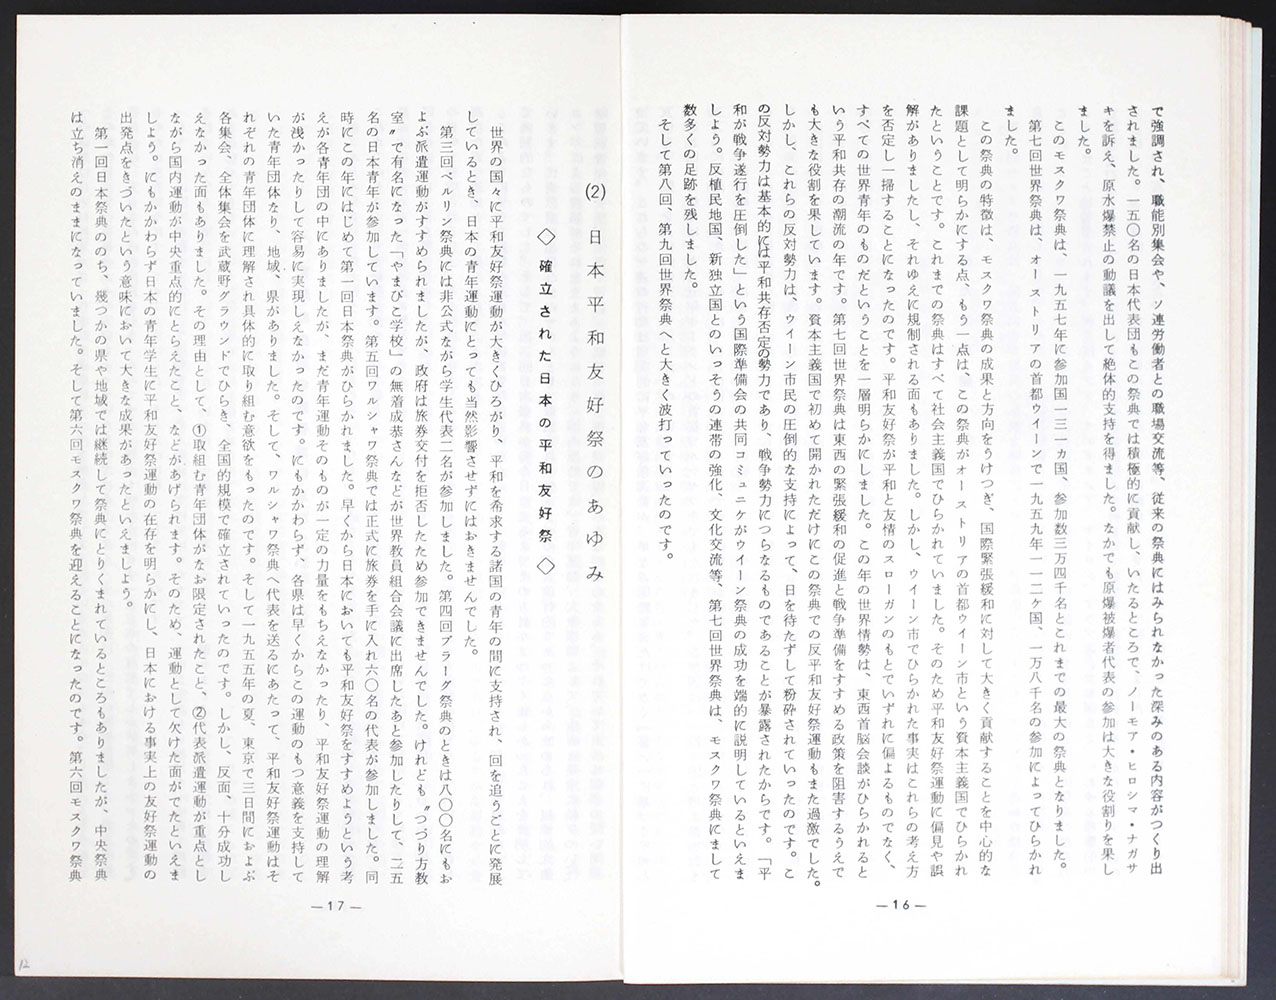 で強調され、職能別集会や、ソ連労働者との職場交流等、従来の祭典にはみられなかった深みのある内容がつくり出
されました。一五〇名の日本代表団もこの祭典では積極的に貢献し、いたるところで、ノーモア・ヒロシマ・ナガサ
キを訴え、原水爆禁止の動議を出して絶体的支持を得ました。なかでも原爆被爆者代表の参加は大きな役割りを果し
ました。
このモスクワ祭典は、一九五七年に参加国一三一カ国、参加数三万四千名とこれまでの最大の祭典となりました。
第七回世界祭典は、オーストリアの首都ウイーンで一九五九年一一二ケ国、一万八千名の参加によってひらかれ
ました。
この祭典の特徴は、モスクワ祭典の成果と方向をうけつぎ、国際緊張緩和に対して大きく貢献することを中心的な
課題として明らかにする点、もう一点は、この祭典がオーストリアの首都ウイーン市という資本主義国でひらかれ
たということです。これまでの祭典はすべて社会主義国でひらかれていました。そのため平和友好祭運動に偏見や誤
解がありましたし、それゆえに規制される面もありました。しかし、ウイーン市でひらかれた事実はこれらの考え方
を否定し一掃することになったのです。平和友好祭が平和と友情のスローガンのもとでいずれに偏よるものでなく、
すべての世界青年のものだということを一層明らかにしました。この年の世界情勢は、東西首脳会談がひらかれると
いう平和共存の潮流の年です。第七回世界祭典は東西の緊張緩和の促進と戦争準備をすすめる政策を阻害するうえで
も大きな役割を果しています。資本主義国で初めて開かれただけにこの祭典での反平和友好祭運動もまた過激でした。
しかし、これらの反対勢力は、ウイーン市民の圧倒的な支持によって、日を待たずして粉砕されていったのです。こ
の反対勢力は基本的には平和共存否定の勢力であり、戦争勢力につらなるものであることが暴露されたからです。「平
和が戦争遂行を圧倒した」という国際準備会の共同コミュニケがウイーン祭典の成功を端的に説明しているといえま
しよう。反植民地国、新独立国とのいっそうの連帯の強化、文化交流等、第七回世界祭典は、モスクワ祭典にまして
数多くの足跡を残しました。
そして第八回、第九回世界祭典へと大きく波打っていったのです。
—16—
(2) 日本平和友好祭のあゆみ
◇ 確立された日本の平和友好祭 ◇
世界の国々に平和友好祭運動が大きくひろがり、平和を希求する諸国の青年の間に支持され、回を追うごとに発展
しているとき、日本の青年運動にとっても当然影響させずにはおきませんでした。
第三回ベルリン祭典には非公式ながら学生代表二名が参加しました。第四回ブラーグ祭典のときは八〇〇名にもお
よぶ派遣運動がすすめられましたが、政府は旅券交付を拒否したため参加できませんでした。けれども〝つづり方教
室〟で有名になった「やまびこ学校」の無着成恭さんなどが世界教員組合会議に出席したあと参加したりして、二五
名の日本青年が参加しています。第五回ワルシャワ祭典では正式に旅券を手に入れ六〇名の代表が参加しました。同
時にこの年にはじめて第一回日本祭典がひらかれました。早くから日本においても平和友好祭をすすめようという考
えが各青年団の中にありましたが、まだ青年運動そのものが一定の力量をもちえなかったり、平和友好祭運動の理解
が浅かったりして容易に実現しえなかったのです。にもかかわらず、各県は早くからこの運動のもつ意義を支持して
いた青年団体なり、地域、県がありました。そして、ワルシャワ祭典へ代表を送るにあたって、平和友好祭運動はそ
れぞれの青年団体に理解され具体的に取り組む意欲をもったのです。そして一九五五年の夏、東京で三日間におよぶ
各集会、全体集会を武蔵野グラウンドでひらき、全国的規模で確立されていったのです。しかし、反面、十分成功し
えなかった面もありました。その理由として、①取組む青年団体がなお限定されたこと、②代表派遣運動が重点とし
ながら国内運動が中央重点的にとらえたこと、などがあげられます。そのため、運動として欠けた面がでたといえま
しよう。にもかかわらず日本の青年学生に平和友好祭運動の存存を明らかにし、日本における事実上の友好祭運動の
出発点をきづいたという意味において大きな成果があったといえましよう。
第一回日本祭典ののち、幾つかの県や地域では継続して祭典にとりくまれているところもありましたが、中央祭典
は立ち消えのままになっていました。そして第六回モスクワ祭典を迎えることになったのです。第六回モスクワ祭典
—17—
12